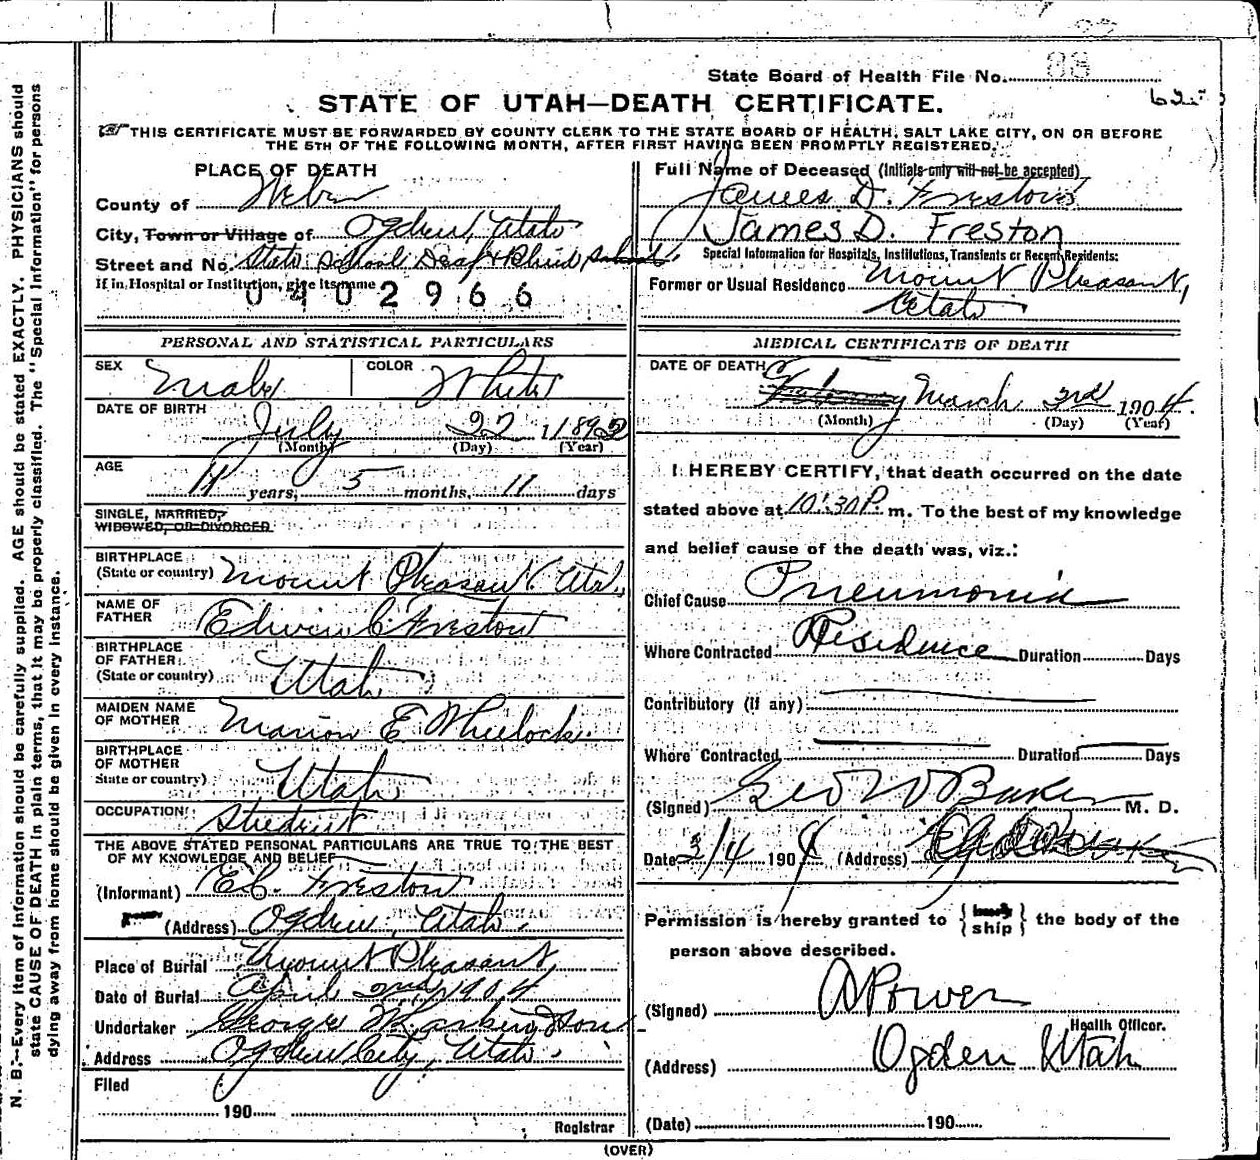 State Board of Health File No. 88
625
STATE OF UTAH—DEATH CERTIFICATE.
THIS CERTIFICATE MUST BE FORWARDED BY COUNTY CLERK TO THE STATE BOARD OF HEALTH, SALT LAKE CITY, ON OR BEFORE
THE 5TH OF THE FOLLOWING MONTH, AFTER FIRST HAVING BEEN PROMPTLY REGISTERED.
PLACE OF DEATH
County of Weber
City, Town or Village of Ogden, Utah
Street and No. State School Deaf & Blind School.
If in Hospital or Institution, give its name
0402966
Full Name of Deceased (Initials only will not be accepted)
James D. Freston
James D. Freston
Special Information for Hospitals, Institutions, Transients or Recent Residents:
Former or Usual Residence Mount Pleasant,
Utah
PERSONAL AND STATISTICAL PARTICULARS
SEX Male COLOR White
DATE OF BIRTH
July 22 1892
(Month) (Day) (Year)
AGE
11 years, 5 months, 11 days
SINGLE, MARRIED,
WIDOWED, OR DIVORCED
BIRTHPLACE
(State or country) Mount Pleasant Utah,
NAME OF
FATHER Edwin C Freston
BIRTHPLACE
OF FATHER
(State or country) Utah
MAIDEN NAME
OF MOTHER Marion E Wheelock
BIRTHPLACE
OF MOTHER
State or country) Utah
OCCUPATION Student
THE ABOVE STATED PERSONAL PARTICULARS ARE TRUE TO THE BEST
OF MY KNOWLEDGE AND BELIEF
(Informant) E C. Freston
(Address) Ogden, Utah.
Place of Burial Mount Pleasant,
Date of Burial April 2nd, 1904
Undertaker George W Larkin & Son
Address Ogden City, Utah.
Filed
190
Registrar
MEDICAL CERTIFICATE OF DEATH
DATE OF DEATH
February March 3rd 1904.
(Month) (Day) (Year)
I HEREBY CERTIFY, that death occurred on the date
stated above at 10:30 P. m. To the best of my knowledge
and belief cause of the death was, viz.:
Chief Cause Pneumonia
Where Contracted Residence Duration Days
Contributory (if any)
Where Contracted Duration Days
(Signed) Geo W Baker M. D.
Date 3/4 1904 (Address)
Permission is hereby granted to { bury ship } the body of the
person above described.
(Signed) A Power
Health Officer.
(Address) Ogden Utah
(Date) 190
(OVER)
N. B.—Every item of information should be carefully supplied. AGE should be stated EXACTLY. PHYSICIANS should
state CAUSE OF DEATH in plain terms, that it may be properly classified. The "Special Information" for persons
dying away from home should be given in every instance.